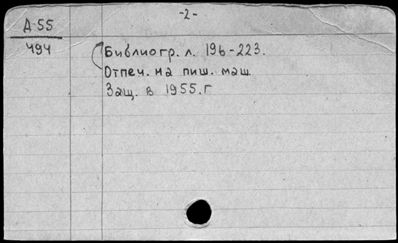 -2-
Д-55
494
Библиогр. л. 196-223.
Отпеч. на пиш. маш.
Защ. в 1955.г